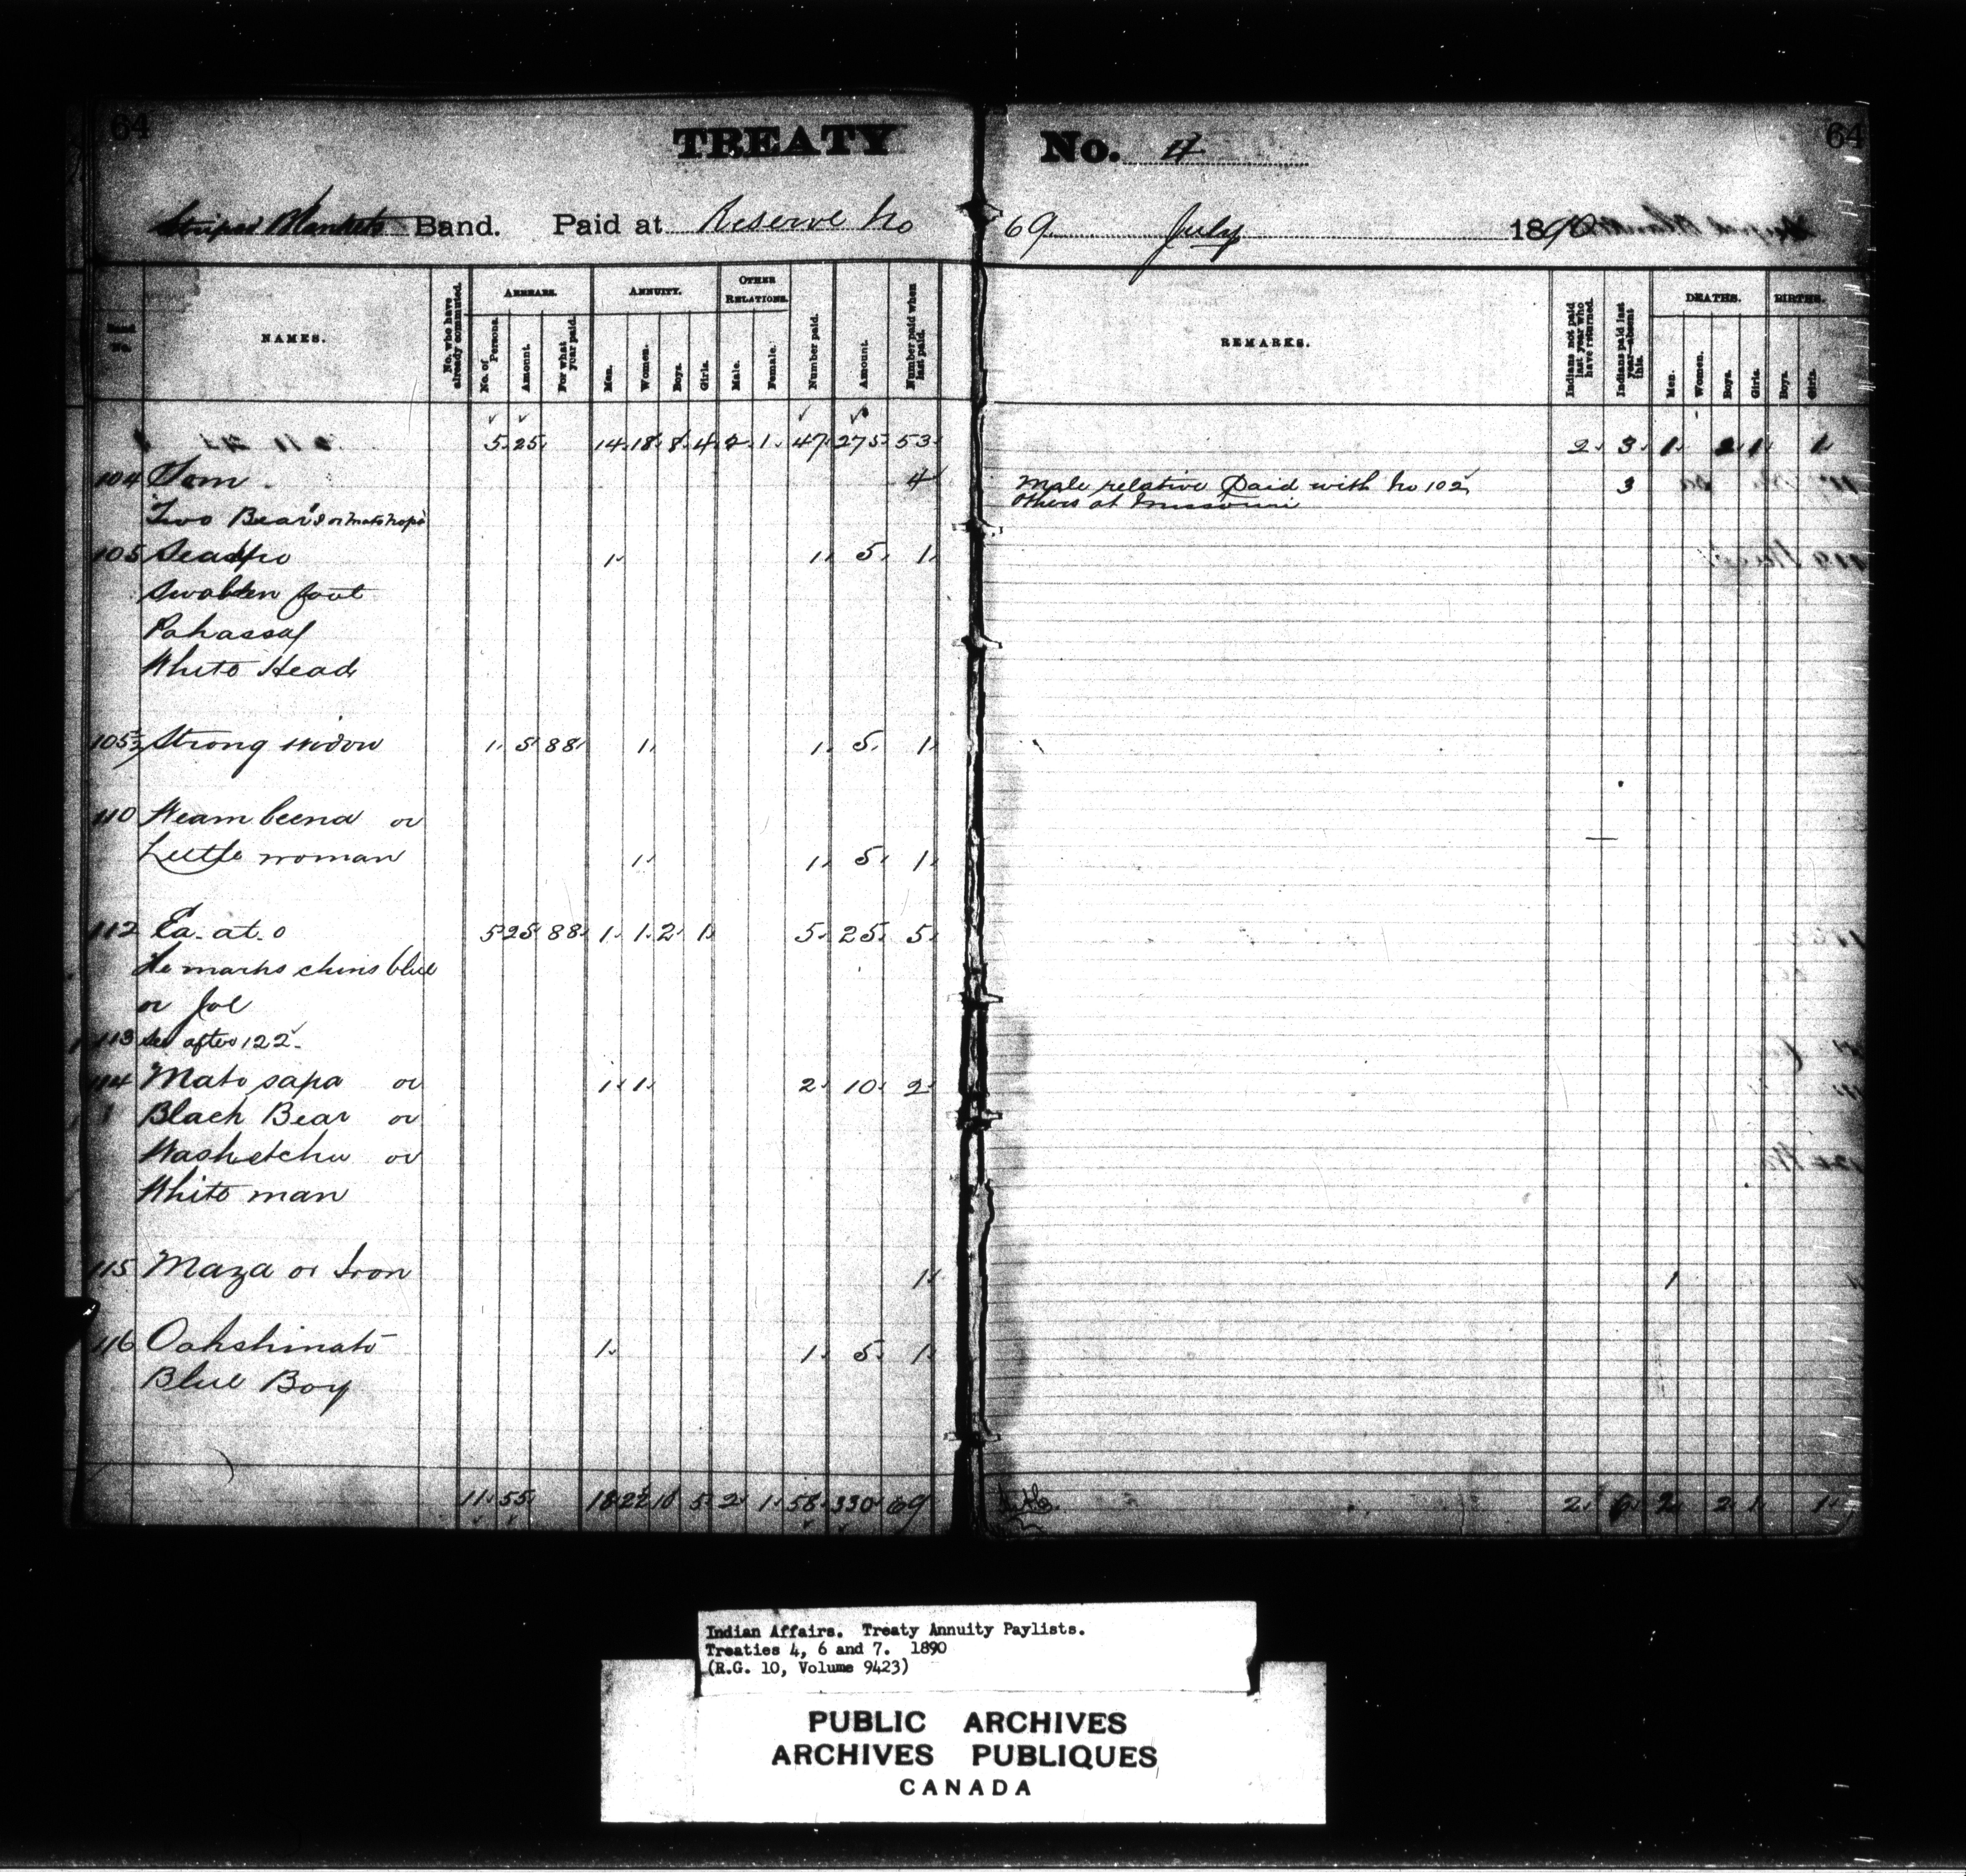 64
TREATY No. 4
64
Striped Blankets Band. Paid at Reserve No 69 July 1890
Band No.
NAMES.
No. who have already commuted.
ARREARS.
No. of Persons.
Amount.
For what year paid.
ANNUITY.
Men.
Women.
Boys.
Girls.
OTHER RELATIONS.
Male.
Female.
Number paid.
Amount.
Number paid when last paid.
REMARKS.
Indians not paid last year who have returned.
Indians paid last year—absent this.
DEATHS.
Men.
Women.
Boys.
Girls.
BIRTHS.
Boys.
Girls.
5 25 14 18 8 4 2 1 47 275 53 2 3 1 2 1 1
104 Tom 4 Male relative Paid with No 102 3
Others at Missouri
Two Bear's or
105 1 1 5 1
Swollen foot
Pahassaf
White Head
105 1/2 Strong widow 1 5 88 1 1 5 1
110 Weambeena or
Little woman 1 1 5 1
112 Ea-at-o 5 25 88 1 1 2 1 5 25 5
He marks chins blue
or Joe
113 See after 122
114 Mato sapa or 1 1 2 10 2
Black Bear or
Washetchu or
White man
115 Maza or Iron 1 1
116 Oakshinato 1 1 5 1
Blue Boy
11 55 18 22 10 5 2 1 58 330 69 2 6 2 2 1 1
Indian Affairs. Treaty Annuity Paylists.
Treaties 4, 6 and 7. 1890
(R.G. 10, Volume 9423)
PUBLIC ARCHIVES
ARCHIVES PUBLIQUES
CANADA